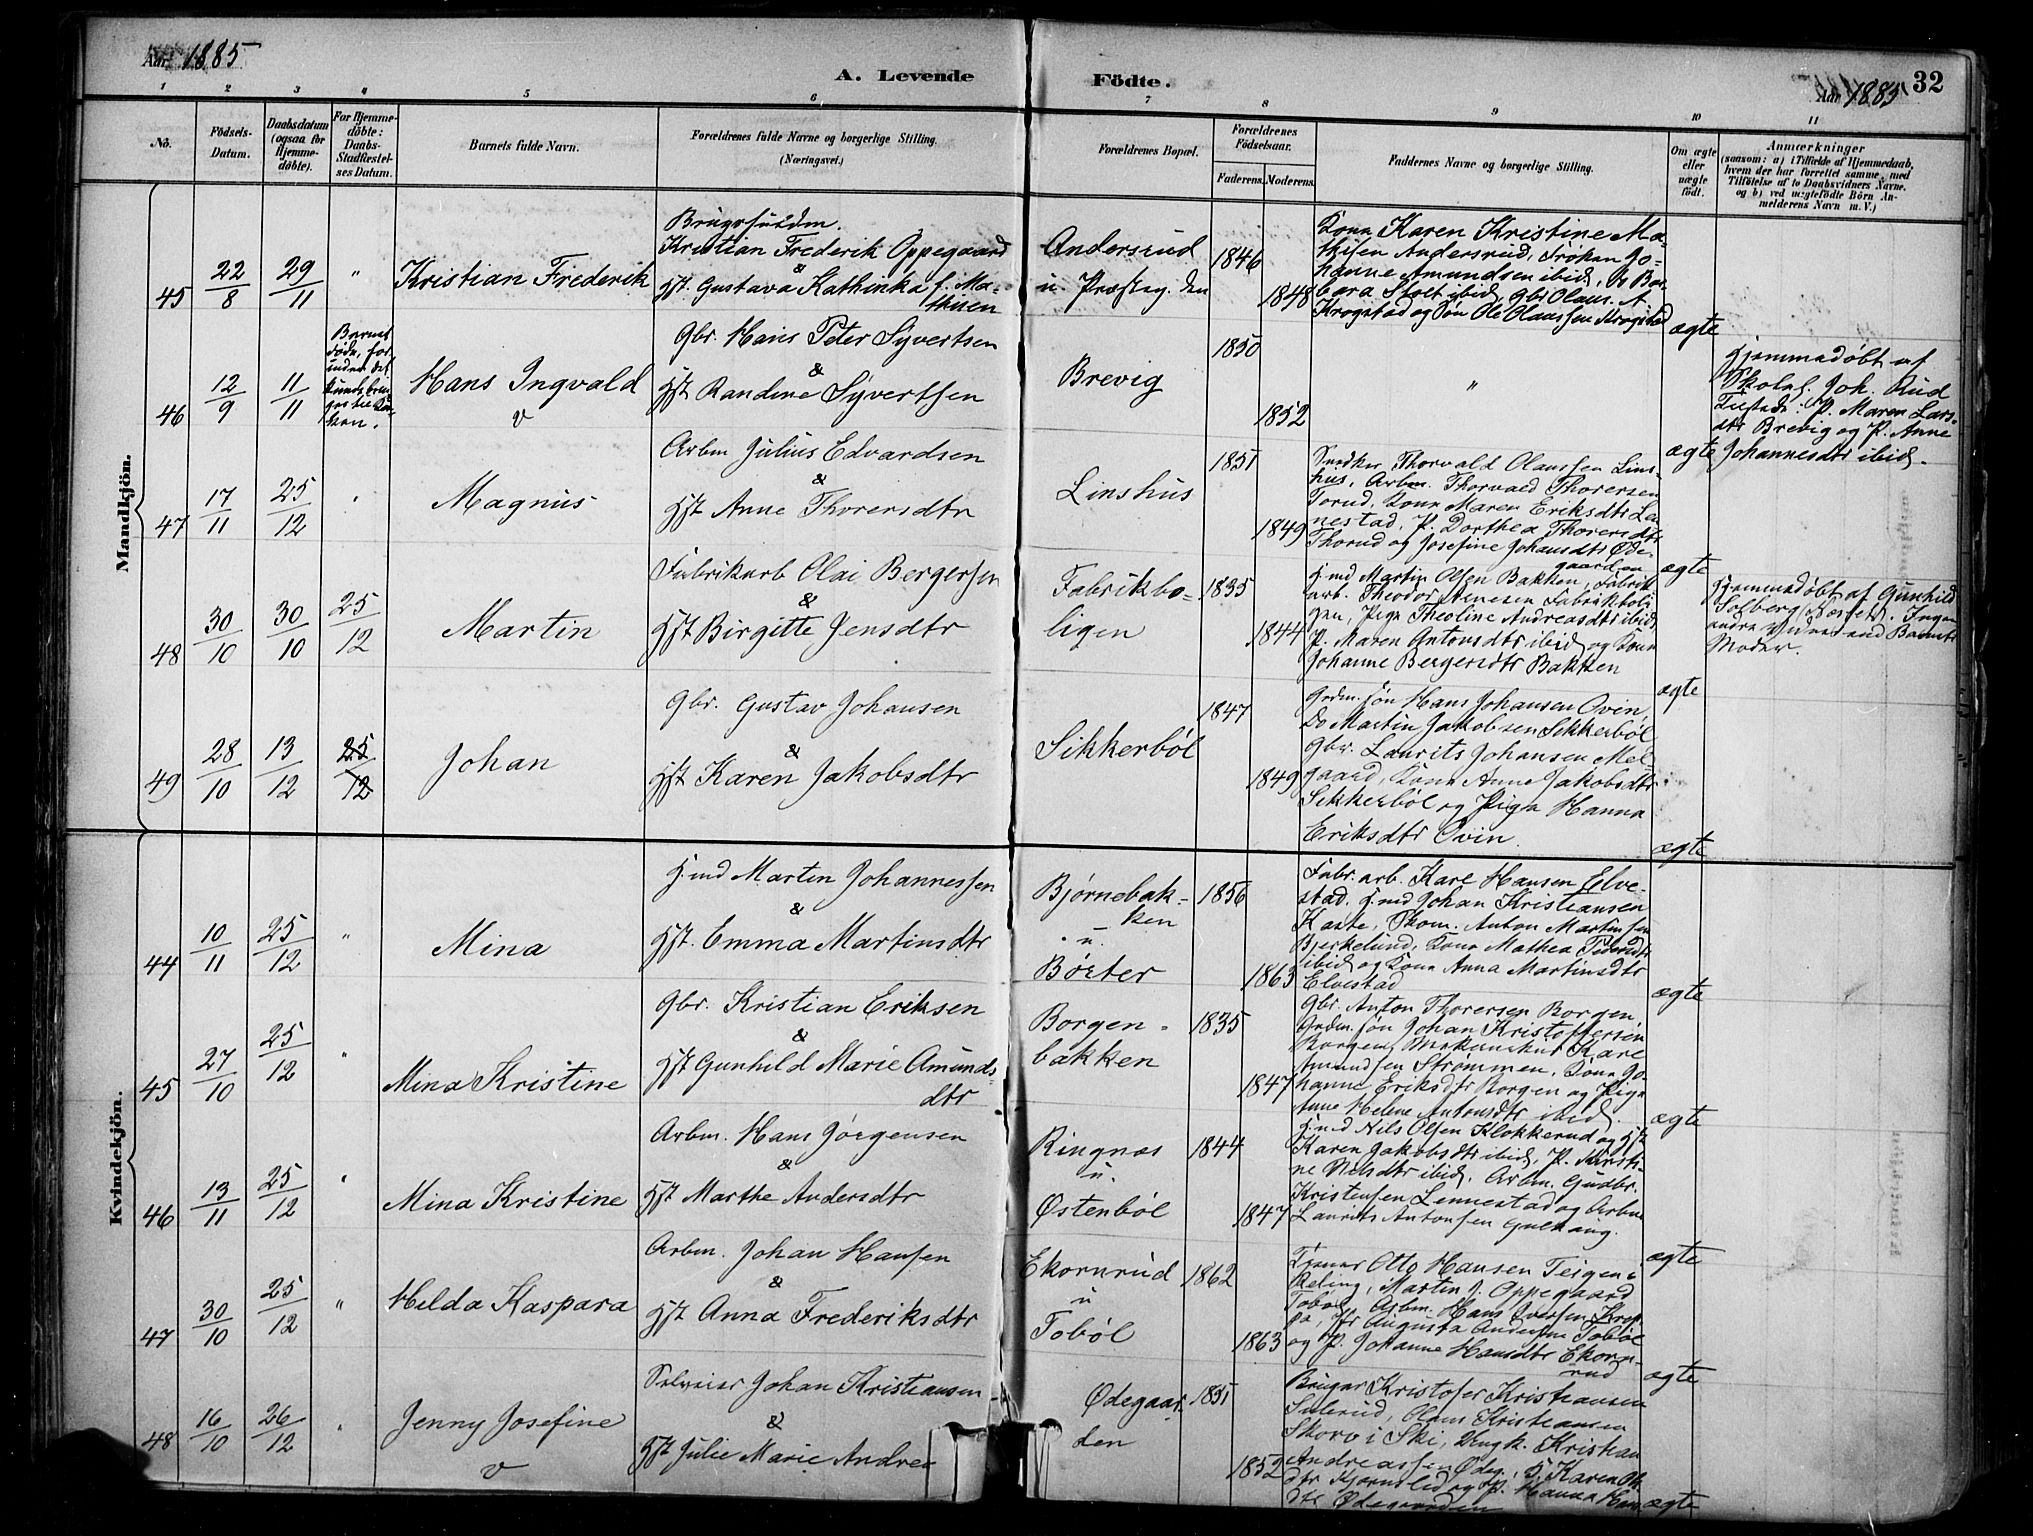 Aar 1885
A. Levende Födte.
Aar 1885 32
1 2 3 4 5 6 7 8 9 10 11
No.
Födsels-Datum.
Daabsdatum (ogsaa for Hjemmedöbte).
For Hjemmedöbte: Daabs-Stadfæstelses Datum.
Barnets fulde Navn.
Forældrenes fulde Navne og borgerlige Stilling.
(Næringsvei.)
Forældrenes Bopæl.
Forældrenes Födselsaar.
Faderens. Moderens.
Faddernes Navne og borgerlige Stilling.
Om ægte eller uægte födt.
Anmærkninger
(saasom: a) i Tilfælde af Hjemmedaab,
hvem der har forrettet samme, med
Tilföielse af to Daabsvidners Navne,
og b) ved uægtefödte Börn Anmelderens Navn m. V.)
Mandkjön.
45 22/8 29/11 "
Kristian Frederik
Kristian Frederik Oppegaard
&
Hst. Gustava Kathinka f. Mathisen
Andersrud
u. Præsteg. den
1846
1848
Kona Karen Kristine Ma-
thisen Andersrud, Frøken Jo-
hanne Amundsen ibid,
bara Stoet ibid, Gbr Olaus. A
Krogstad og Søn Ole Olaussen Krogstad
ægte
46 12/9 11/11
Hans Ingvald
v
Gbr. Hans Peter Syvertsen
&
Hst Randine Syvertsen
Brevig
1850
1852
"
ægte
Hjemmedøbt af
Skolel. Joh. Rud
Tilstede: P. Maren Lars-
dtr Brevig og P. Anne
Johannesdtr ibid.
47 17/11 25/12
Magnus
Arbm Julius Edvardsen
&
Hst Anne Thorersdtr
Linshus
1851
1849
Snedker Thorvald Olaussen Lins-
hus, Arbm. Thorvald Thorersen
Torud, Kona Maren Eriksdtr Len-
nestad, P. Dorthea Thorersdtr
Thorud og Josefine Johansdtr Øde-
gaarden
ægte
48 30/10 30/10 25/12
Martin
Fabrikarb Olai Bergersen
&
Hst Birgitte Jensdtr
Fabrikbo-
ligen
1835
1844
Hmd Martin Olsen Bakken, Fabrik
arb. Theodor Arnesen Fabrikboli
gen, Pige Theoline Andreasdtr ibid,
P. Maren Antonsdtr ibid og Kona
Johanne Bergersdtr Bakken
ægte
Hjemmedøbt af Gunhild
Solberg. Ingen
andre end Barnets
Moder.
49 28/10 13/12 25/12
Johan
Gbr. Gustav Johansen
&
Hst Karen Jakobsdtr
Sikkerbøl
1847
1849
Grdm. søn Hans Johansen Ovin,
Do Martin Jakobsen Sikkerbøl
Gbr. Laurits Johansen Mel-
gaard, Kona Anne Jakobsdtr
Sikkerbøl og Pige Hanna
Eriksdtr Ovin.
ægte
Kvindekjön.
44 10/11 25/12 "
Mina
Hmd Martin Johannessen
&
Hst. Emma Martinsdtr
Bjørnebak-
ken
u.
Børter
1856
1863
Fabr. arb. Karl Hansen Elve-
stad. Hmd Johan Kristiansen
Kaste, Skom. Anton Martinsen
Bjerkelund, Kona Mathea
ibid og Kona Anna Martinsdtr
Elvestad
ægte
45 27/10 25/12 "
Mina Kristine
Gbr. Kristian Eriksen
&
Hst Gunhild Marie Amunds-
dtr
Borgen-
bakken
1835
1847
Gbr. Anton Thorersen Borgen,
Grdm. søn Johan Kristoffersen
Borgen, Karl
Amundsen Strømmen, Kona Jo-
hanne Eriksdtr Borgen og Pige
Anne Helene Antonsdtr ibid.
ægte
46 13/11 25/12 "
Mina Kristine
Arbm. Hans Jørgensen
&
Hst Marthe Andersdtr
Ringnæs
u.
Østenbøl
1844
1847
Hmd Nils Olsen Klokkerud og Hst
Karen Jakobsdtr ibid, P. Kirsti-
ne Nilsdtr ibid, Arbm. Gudbr.
Kristensen Lennestad og Arbm
Laurits Antonsen
ægte
47 30/10 25/12 "
Hilda Kaspara
Arbm. Johan Hansen
&
Hst Anna Frederiksdtr
Ekornrud
u
Tobøl
1862
1863
Tjener Otto Hansen Teigen i
Martin J. Oppegaard
Tobøl, Arbm. Hans
Augusta Andersen Tobøl
og P. Johanne Hansdtr Ekorn-
rud
ægte
48 16/10 26/12 "
Jenny Josefine
v
Johan Kristiansen
&
Hst Julie Marie Andrea
Ødegaar-
den
1851
1852
Brüger Kristofer Kristiansen
Sulerud, Olaus Kristiansen
Skorv i Ski, Ungk. Kristian
Andreassen Ødeg.,
og P. Hanna Han
dtr Ødegaarden
ægte